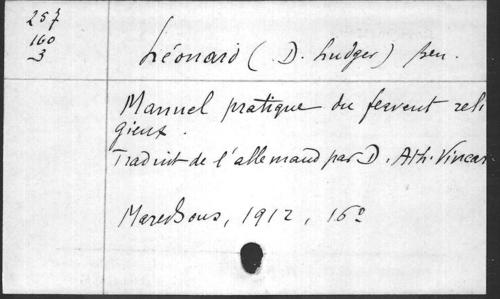 257
160
3
Léonard (D. Ludger) ben.
Manuel pratique du fervent reli
gieux.
Traduit de l'allemand par D. Ath. Vincent
Maredsous, 1912, 16º